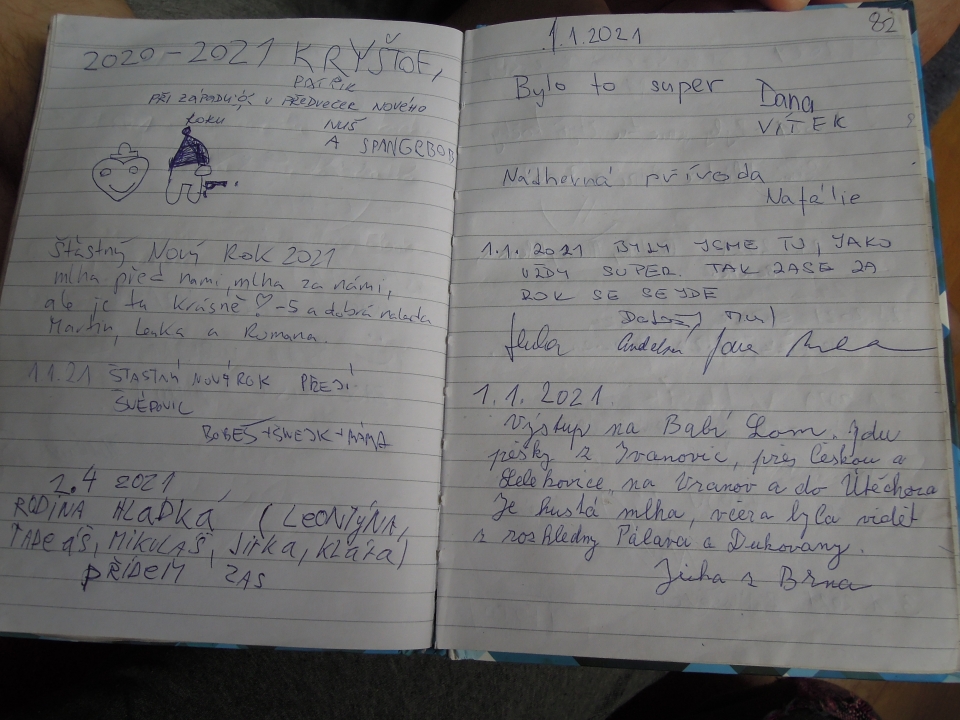 2020-2021 KRYŠTOF,
PATRIK
PŘI ZÁPADU V PŘEDVEČER NOVÉHO
ROKU
A SPANGEBOB
Štastný Nový Rok 2021
mlha před námi, mlha za námi,
ale je tu krásně ♡ -5 a dobrá nalada
Martin, Lenka a Romana.
1.1.21 ŠTASTNÝ NOVÝ ROK PŘEJÍ
BOBEŠ + + MÁMA
2.4 2021
RODINA HLADKÁ (LEONTÝNA,
TADEÁŠ, MIKULÁŠ, JIRKA, KLÁRA)
PŘIDEM ZAS
82
1.1.2021
Bylo to super Dana
VÍTEK
Nádherná přívoda
Natálie
1.1. 2021 BYLY JSME TU, JAKO
VŽDY SUPER. TAK ZASE ZA
ROK SE SEJDE
1.1. 2021.
Výstup na Babí Lom. Jdu
pěšky z Ivanovic, přes Českou a
Lelekovice, na Vranov a do Útěchova
Je hustá mlha, včera byla vidět
z rozhledny Pálava a Dukovany.
Jirka z Brna